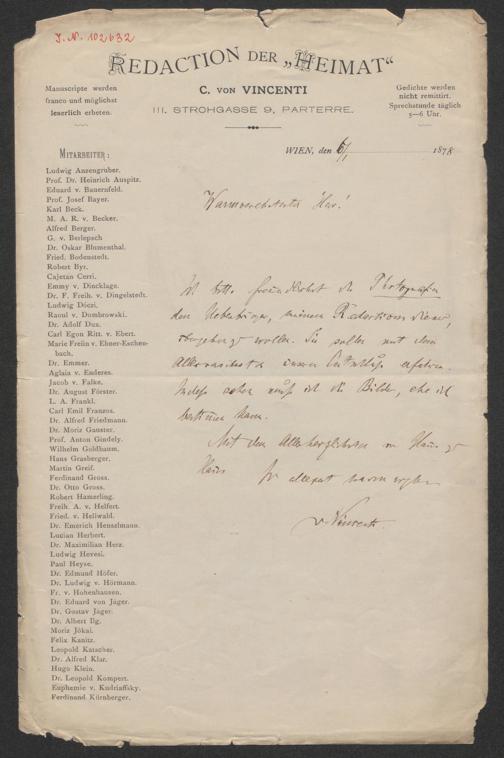 J. N. 102632
REDACTION DER „HEIMAT“
C. VON VINCENTI
III. STROHGASSE 9, PARTERRE.
Manuscripte werden
franco und möglichst
leserlich erbeten.
Gedichte werden
nicht remittirt.
Sprechstunde täglich
5—6 Uhr.
WIEN, den 6/1 1878
MITARBEITER:
Ludwig Anzengruber.
Prof. Dr. Heinrich Auspitz.
Eduard v. Bauernfeld.
Prof. Josef Bayer.
Karl Beck.
M. A. R. v. Becker.
Alfred Berger.
G. v. Berlepsch
Dr. Oskar Blumenthal.
Fried. Bodenstedt.
Robert Byr.
Cajetan Cerri.
Emmy v. Dincklage.
Dr. F. Freih. v. Dingelstedt.
Ludwig Dóczi.
Raoul v. Dombrowski.
Dr. Adolf Dux.
Carl Egon Ritt. v. Ebert.
Marie Freiin v. Ebner-Eschen-
bach.
Dr. Emmer.
Aglaia v. Enderes.
Jacob v. Falke.
Dr. August Förster.
L. A. Frankl.
Carl Emil Franzos.
Dr. Alfred Friedmann.
Dr. Moriz Gauster.
Prof. Anton Gindely.
Wilhelm Goldbaum.
Hans Grasberger.
Martin Greif.
Ferdinand Gross.
Dr. Otto Gross.
Robert Hamerling.
Freih. A. v. Helfert.
Fried. v. Hellwald.
Dr. Emerich Henselmann.
Lucian Herbert.
Dr. Maximilian Herz.
Ludwig Hevesi.
Paul Heyse.
Dr. Edmund Höfer.
Dr. Ludwig v. Hörmann.
Fr. v. Hohenhausen.
Dr. Eduard von Jäger.
Dr. Gustav Jäger.
Dr. Albert Ilg.
Moriz Jókai.
Felix Kanitz.
Leopold Katscher.
Dr. Alfred Klar.
Hugo Klein.
Dr. Leopold Kompert.
Euphemie v. Kudriaffsky.
Ferdinand Kürnberger.
Warmverehrter Herr!
Ich bitte freundlichst die Photografie
dem Ueberbringer, meinem Redactionsdiener,
übergeben zu wollen. Sie sollen mit dem
erfahren.
muß ich die Bilder, ehe ich
bestimmen kann.
Mit dem Allerherzlichsten von Haus zu
Haus Ihr allezeit warm ergebener
v. Vincenti